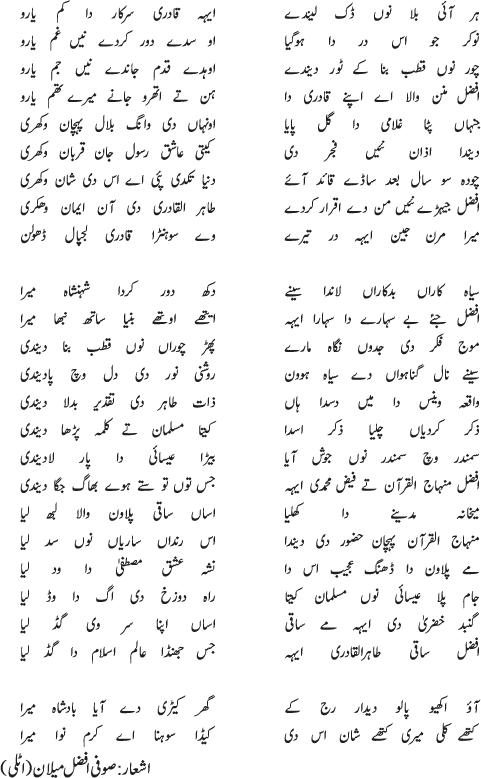 ہر آئی بلا نوں ڈک لیندے ایہہ قادری سرکار دا کم یارو
نوکر جو اس در دا ہوگیا او سدے دور کردے نیں غم یارو
چور نوں قطب بنا کے ٹور دیندے اوہدے قدم جاندے نیں جم یارو
افضل منن والا اے اپنے قادری دا ہن تے اتھرو جانے میرے تھم یارو
جنہاں پٹا غلامی دا گل پایا اونہاں دی وانگ بلال پہچان وکھری
دیندا اذان نئیں فجر دی کیتی عاشق رسول جان قربان وکھری
چودہ سو سال بعد ساڈے قائد آئے دنیا تکدی پئی اے اس دی شان وکھری
افضل جیہڑے نئیں من دے اقرار کردے طاہر القادری دی آن ایمان وکھری
میرا مرن جین ایہہ در تیرے وے سوہنڑا قادری لجپال ڈھولن
سیاہ کاراں بدکاراں لاندا سینے دکھ دور کردا شہنشاہ میرا
افضل جئے بے سہارے دا سہارا ایہہ ایتھے اوتھے بنیا ساتھ نبھا میرا
موج فکر دی جدوں نگاہ مارے پھڑ چوراں نوں قطب بنا دیندی
سینے نال گناہواں دے سیاہ ہوون روشنی نور دی دل وچ پادیندی
واقعہ وینس دا میں دسدا ہاں ذات طاہر دی تقدیر بدلا دیندی
ذکر کردیاں چلیا ذکر اسدا کیتا مسلمان تے کلمہ پڑھا دیندی
سمندر وچ سمندر نوں جوش آیا بیڑا عیسائی دا پار لادیندی
افضل منہاج القرآن تے فیض محمدی ایہہ جس توں تو ستے ہوے بھاگ جگا دیندی
میخانہ مدینے دا کھلیا اساں ساقی پلاون والا لبھ لیا
منہاج القرآن پہچان حضور دی دیندا اس رنداں ساریاں نوں سد لیا
مے پلاون دا ڈھنگ عجیب اس دا نشہ عشق مصطفیٰ دا ود لیا
جام پلا عیسائی نوں مسلمان کیتا راہ دوزخ دی اگ دا وڈ لیا
گنبد خضریٰ دی ایہہ مے ساقی اساں اپنا سر وی گڈ لیا
افضل ساقی طاہرالقادری ایہہ جس جھنڈا عالم اسلام دا گڈ لیا
آؤ اکھیو پالو دیدار رج کے گھر کیڑی دے آیا بادشاہ میرا
کتھے کلی میری کتھے شان اس دی کیڈا سوہنا اے کرم نوا میرا
اشعار: صوفی افضل میلان (اٹلی)